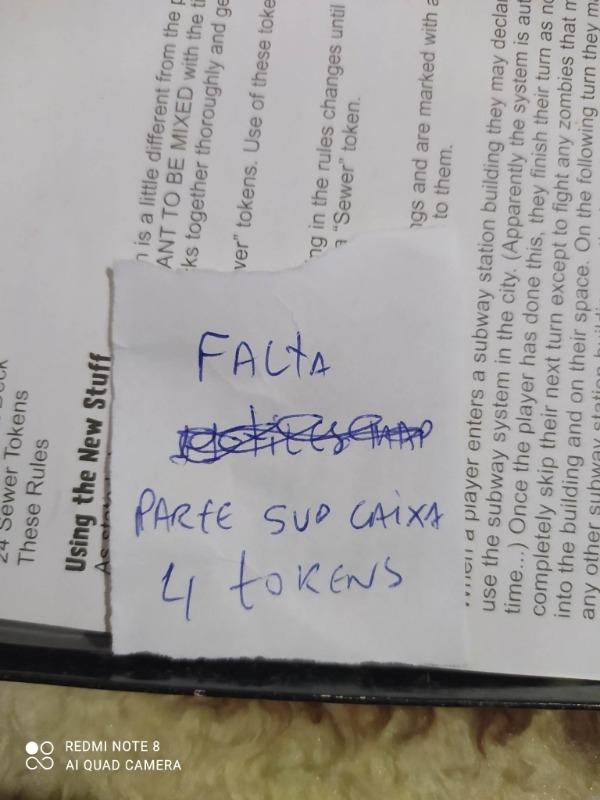 FALTA
PARTE SUP CAIXA
4 TOKENS
24 Sewer Tokens
These Rules
Using the New Stuff
is a little different from the
ANT TO BE MIXED with the
ks together thoroughly and
ver" tokens. Use of these
ng in the rules changes until
"Sewer" token.
ngs and are marked with a
to them.
a player enters a subway station building they may
use the subway system in the city. (Apparently the system is
time...) Once the player has done this, they finish their turn as
completely skip their next turn except to fight any zombies that
into the building and on their space. On the following turn they
any other subway station
REDMI NOTE 8
AI QUAD CAMERA